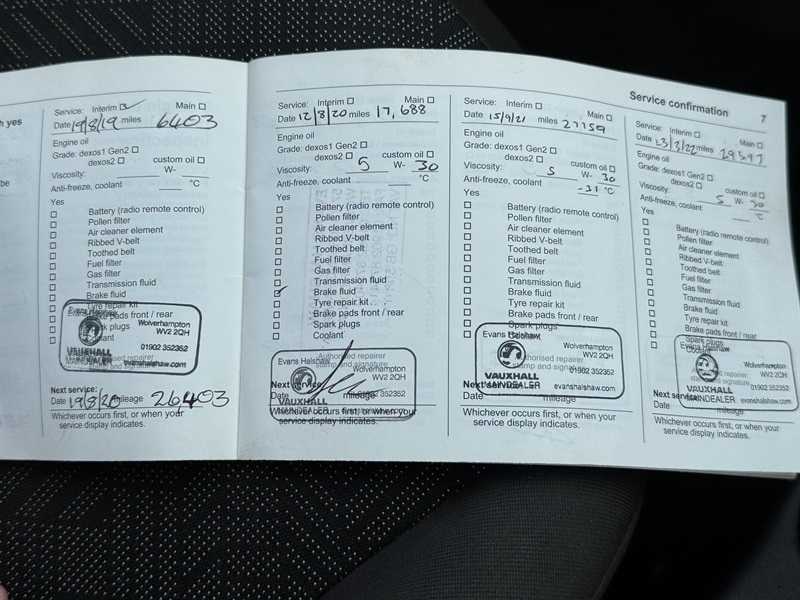 Service confirmation 7
Service: Interim Main
Date 19/8/19 miles 6403
Engine oil
Grade: dexos1 Gen2
dexos2 custom oil
Viscosity: W-
Anti-freeze, coolant °C
Yes
Battery (radio remote control)
Pollen filter
Air cleaner element
Ribbed V-belt
Toothed belt
Fuel filter
Gas filter
Transmission fluid
Brake fluid
Tyre repair kit
Brake pads front / rear
Spark plugs
Evans Halshaw
Wolverhampton
WV2 2QH
01902 352352
VAUXHALL
Next service:
Date 19/8/20 mileage 26403
Whichever occurs first, or when your
service display indicates.
Service: Interim Main
Date 12/8/20 miles 17,688
Engine oil
Grade: dexos1 Gen2
dexos2 custom oil
Viscosity: 5 W- 30
Anti-freeze, coolant °C
Yes
Battery (radio remote control)
Pollen filter
Air cleaner element
Ribbed V-belt
Toothed belt
Fuel filter
Gas filter
Transmission fluid
Brake fluid
Tyre repair kit
Brake pads front / rear
Spark plugs
Coolant
Evans Halshaw
Authorised repairer
stamp and signature
Wolverhampton
WV2 2QH
352352
VAUXHALL
MAINDEALER
Next service
Date mileage
Whichever occurs first, or when your
service display indicates.
Service: Interim Main
Date 15/9/21 miles 27159
Engine oil
Grade: dexos1 Gen2
dexos2 custom oil
Viscosity: 5 W- 30
Anti-freeze, coolant -31 °C
Yes
Battery (radio remote control)
Pollen filter
Air cleaner element
Ribbed V-belt
Toothed belt
Fuel filter
Gas filter
Transmission fluid
Brake fluid
Tyre repair kit
Brake pads front / rear
Spark plugs
Evans Halshaw
Authorised repairer
stamp and signature
Wolverhampton
WV2 2QH
01902 352352
VAUXHALL
MAINDEALER evanshalshaw.com
Next service
Date mileage
Whichever occurs first, or when your
service display indicates.
Service: Interim Main
Date miles 29597
Engine oil
Grade: dexos1 Gen2
dexos2 custom oil
Viscosity: 5 W- 30
Anti-freeze, coolant °C
Yes
Battery (radio remote control)
Pollen filter
Air cleaner element
Ribbed V-belt
Toothed belt
Fuel filter
Gas filter
Transmission fluid
Brake fluid
Tyre repair kit
Brake pads front / rear
Spark plugs
Evans Halshaw
Wolverhampton
WV2 2QH
01902 352352
VAUXHALL
MAINDEALER evanshalshaw.com
Next service
Date mileage
Whichever occurs first, or when your
service display indicates.